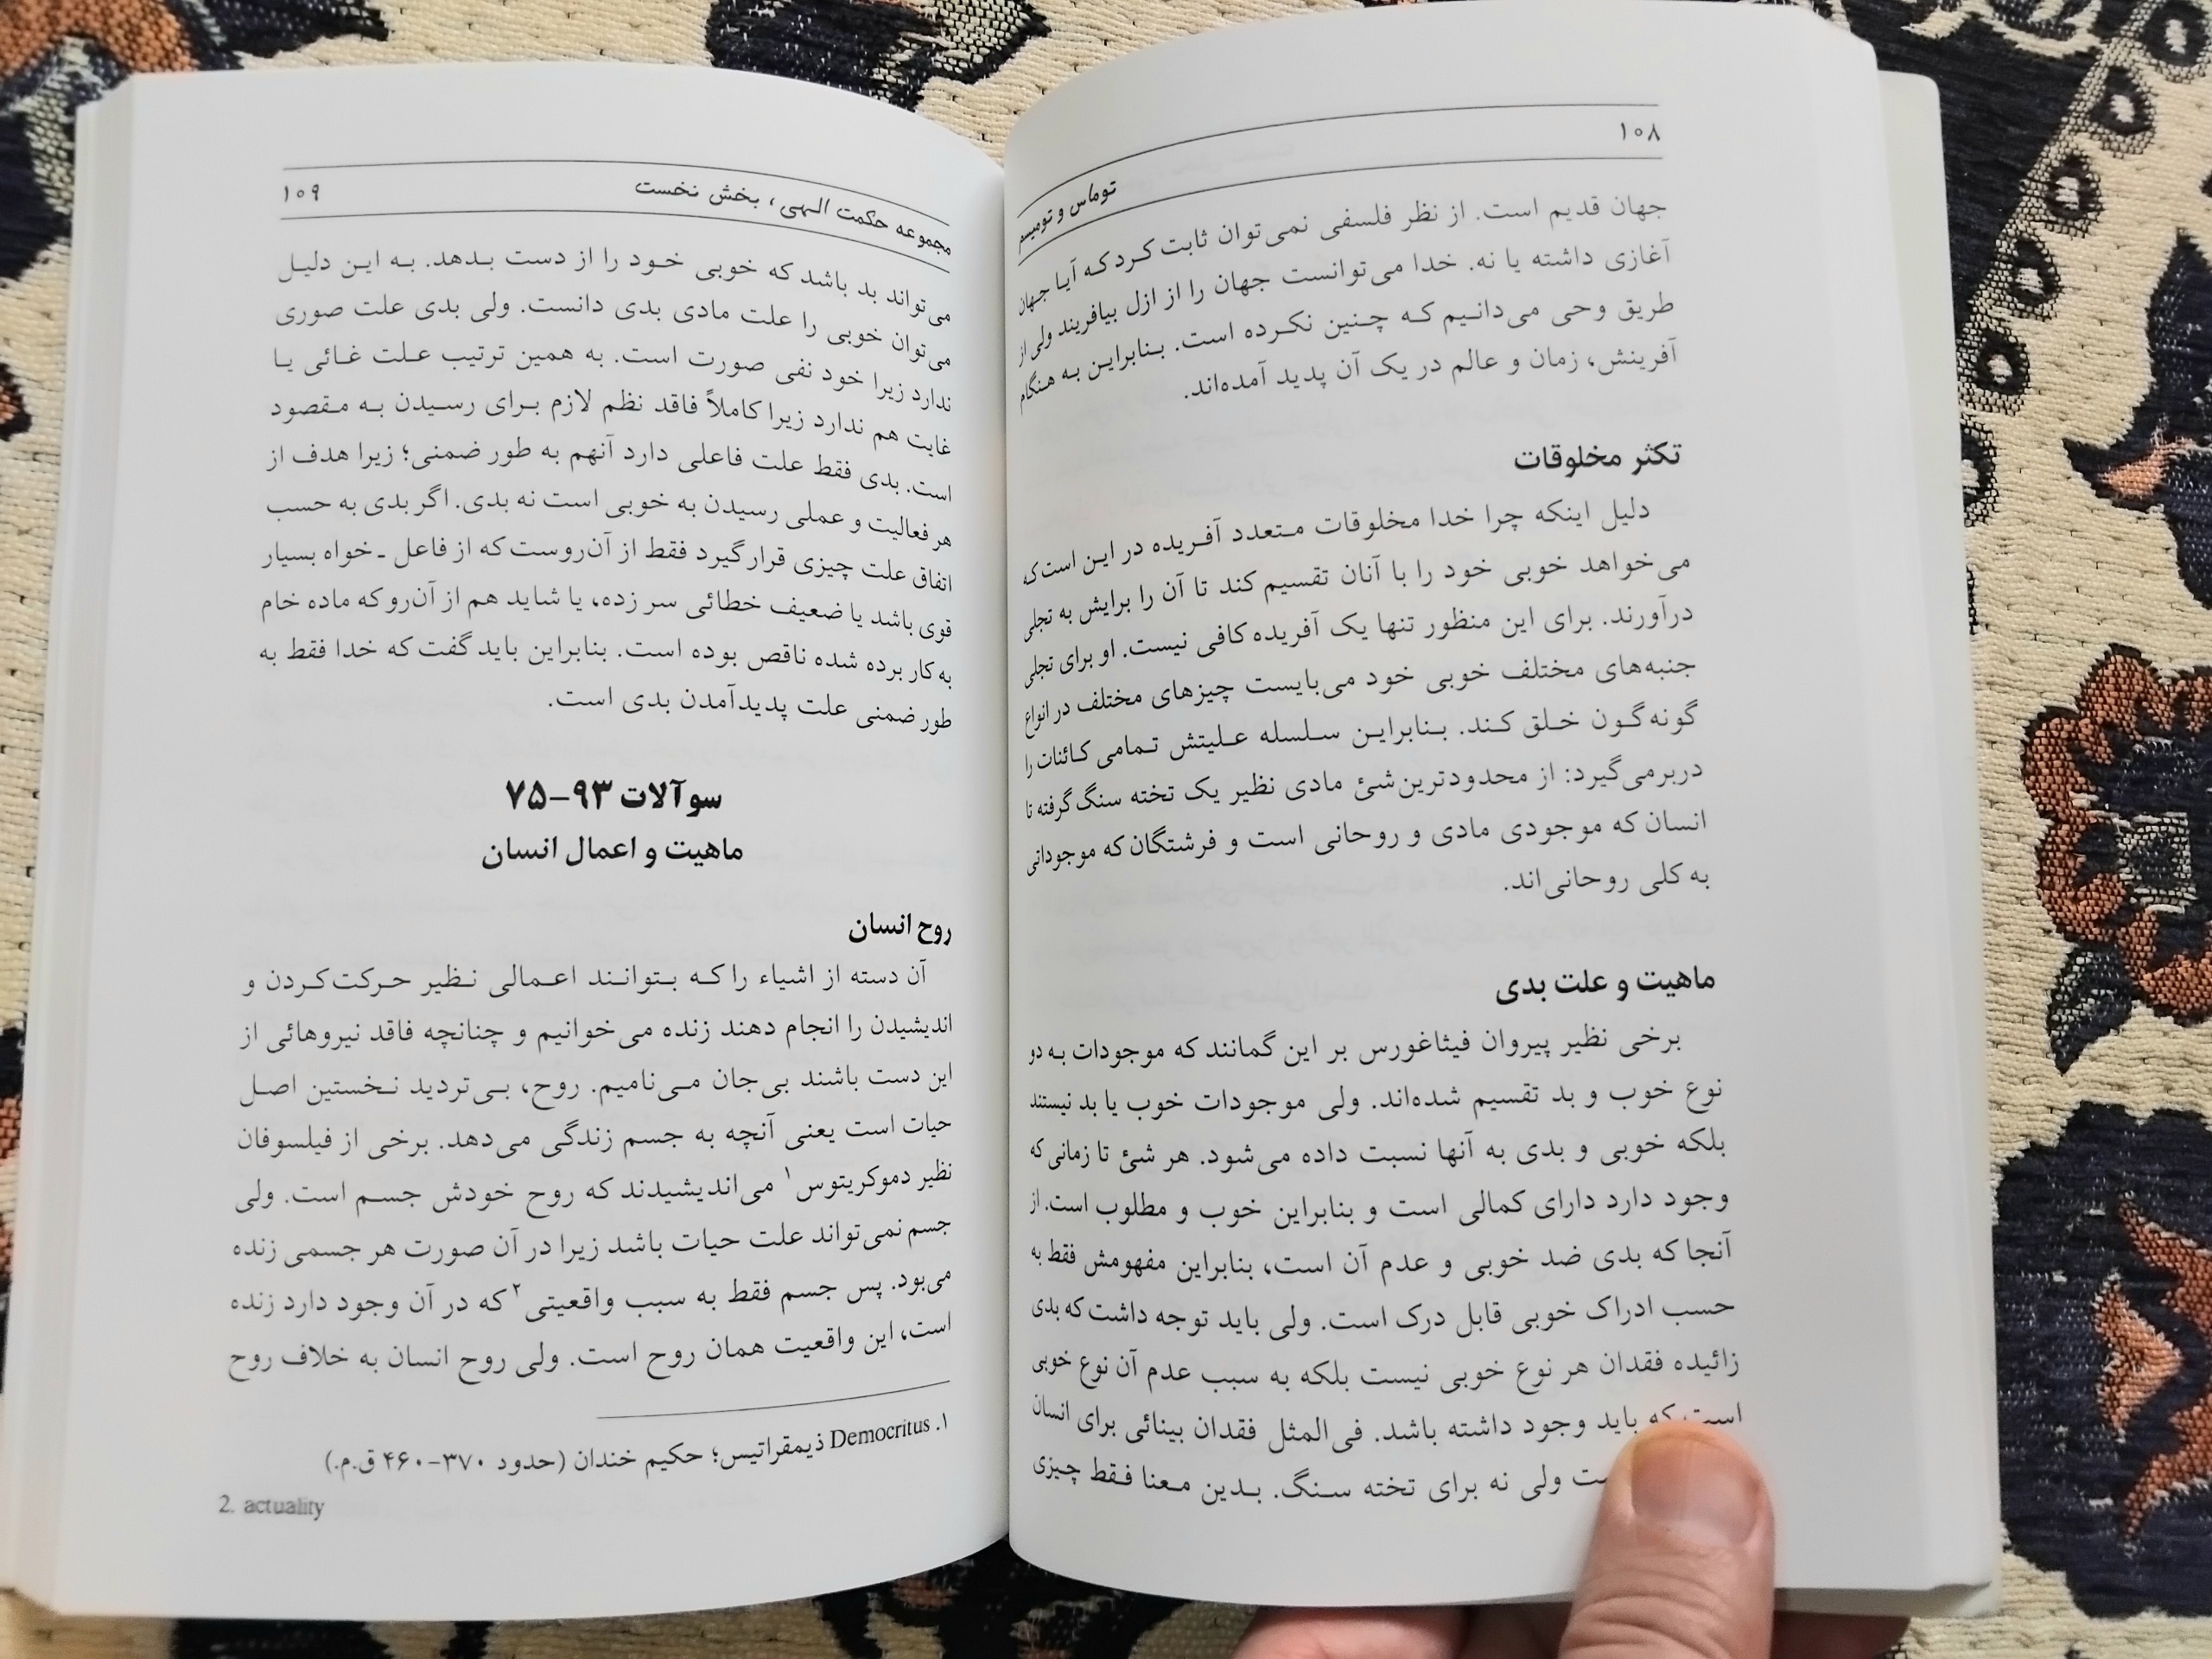 ۱۰۸
توماس و تومیسم
جهان قدیم است. از نظر فلسفی نمی‌توان ثابت کرد که آیا جهان
آغازی داشته یا نه. خدا می‌توانست جهان را از ازل بیافریند ولی از
طریق وحی می‌دانیم که چنین نکرده است. بنابراین به هنگام
آفرینش، زمان و عالم در یک آن پدید آمده‌اند.
تکثر مخلوقات
دلیل اینکه چرا خدا مخلوقات متعدد آفریده در این است که
می‌خواهد خوبی خود را با آنان تقسیم کند تا آن را برایش به تجلی
درآورند. برای این منظور تنها یک آفریده کافی نیست. او برای تجلی
جنبه‌های مختلف خوبی خود می‌بایست چیزهای مختلف در انواع
گونه‌گون خلق کند. بنابراین سلسله علیتش تمامی کائنات را
دربرمی‌گیرد: از محدودترین شئ مادی نظیر یک تخته سنگ گرفته تا
انسان که موجودی مادی و روحانی است و فرشتگان که موجوداتی
به کلی روحانی‌اند.
ماهیت و علت بدی
برخی نظیر پیروان فیثاغورس بر این گمانند که موجودات به دو
نوع خوب و بد تقسیم شده‌اند. ولی موجودات خوب یا بد نیستند
بلکه خوبی و بدی به آنها نسبت داده می‌شود. هر شئ تا زمانی که
وجود دارد دارای کمالی است و بنابراین خوب و مطلوب است. از
آنجا که بدی ضد خوبی و عدم آن است، بنابراین مفهومش فقط به
حسب ادراک خوبی قابل درک است. ولی باید توجه داشت که بدی
زائیده فقدان هر نوع خوبی نیست بلکه به سبب عدم آن نوع خوبی
است که باید وجود داشته باشد. فی‌المثل فقدان بینائی برای انسان
ولی نه برای تخته سنگ. بدین معنا فقط چیزی
مجموعه حکمت الهی، بخش نخست
۱۰۹
می‌تواند بد باشد که خوبی خود را از دست بدهد. به این دلیل
می‌توان خوبی را علت مادی بدی دانست. ولی بدی علت صوری
ندارد زیرا خود نفی صورت است. به همین ترتیب علت غائی یا
غایت هم ندارد زیرا کاملاً فاقد نظم لازم برای رسیدن به مقصود
است. بدی فقط علت فاعلی دارد آنهم به طور ضمنی؛ زیرا هدف از
هر فعالیت و عملی رسیدن به خوبی است نه بدی. اگر بدی به حسب
اتفاق علت چیزی قرار گیرد فقط از آن‌روست که از فاعل ـ خواه بسیار
قوی باشد یا ضعیف خطائی سر زده، یا شاید هم از آن‌رو که ماده خام
به کار برده شده ناقص بوده است. بنابراین باید گفت که خدا فقط به
طور ضمنی علت پدیدآمدن بدی است.
سوآلات ۹۳–۷۵
ماهیت و اعمال انسان
روح انسان
آن دسته از اشیاء را که بتوانند اعمالی نظیر حرکت‌کردن و
اندیشیدن را انجام دهند زنده می‌خوانیم و چنانچه فاقد نیروهائی از
این دست باشند بی‌جان می‌نامیم. روح، بی‌تردید نخستین اصل
حیات است یعنی آنچه به جسم زندگی می‌دهد. برخی از فیلسوفان
نظیر دموکریتوس۱ می‌اندیشیدند که روح خودش جسم است. ولی
جسم نمی‌تواند علت حیات باشد زیرا در آن صورت هر جسمی زنده
می‌بود. پس جسم فقط به سبب واقعیتی۲ که در آن وجود دارد زنده
است، این واقعیت همان روح است. ولی روح انسان به خلاف روح
۱. Democritus ذیمقراتیس؛ حکیم خندان (حدود ۳۷۰–۴۶۰ ق.م.)
2. actuality